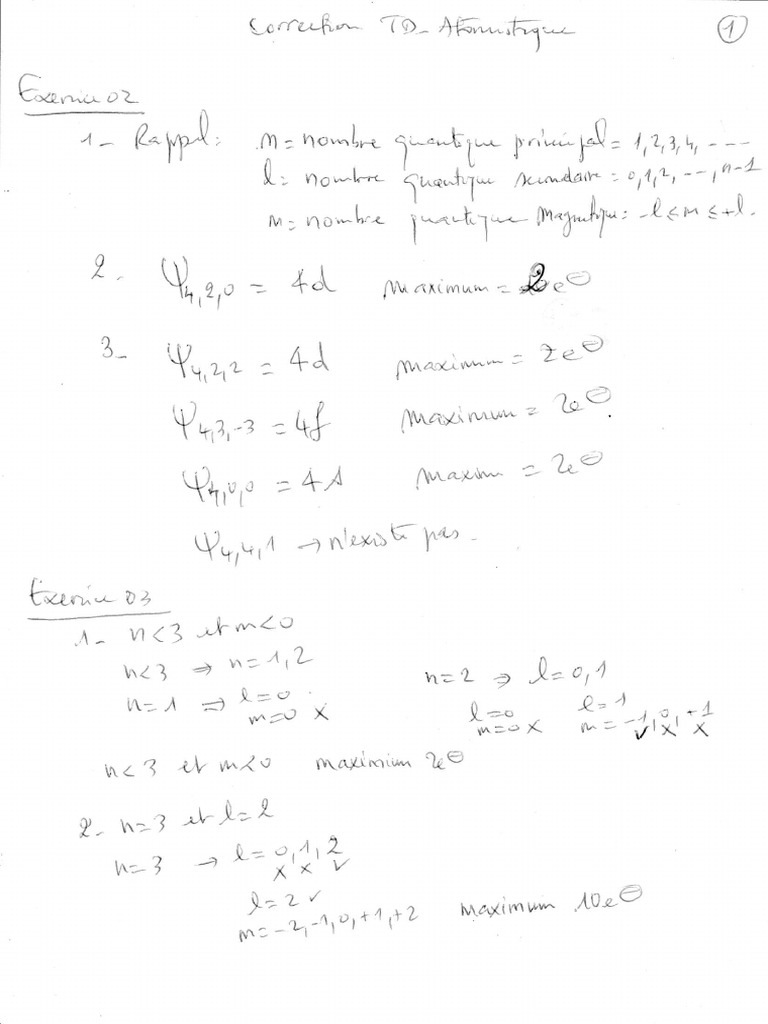 Correction TD_ Atomistique
1
Exercice 02
1_ Rappel : n = nombre quantique principal = 1, 2, 3, 4, ----
l = nombre quantique secondaire = 0, 1, 2, --, n-1
m = nombre quantique Magnetique : -l ≤ m ≤ +l.
2_ Ψ4,2,0 = 4d maximum = 2e⊖
3_ Ψ4,2,2 = 4d maximum = 2e⊖
Ψ4,3,-3 = 4f maximum = 2e⊖.
Ψ4,0,0 = 4s maxim = 2e⊖
Ψ4,4,1 → n'existe pas.
Exercice 03
1_ n<3 et m<0
n<3 ⇒ n=1,2
n=1 ⇒ l=0
m=0 x
n=2 ⇒ l=0,1
l=0 l=1
m=0 x m=-1, 0, +1
✓ x x
n<3 et m<0 maximium 2e⊖
2_ n=3 et l=2
n=3 → l=0,1,2
x x ✓
l=2 ✓
m=-2,-1,0,+1,+2 maximum 10e⊖